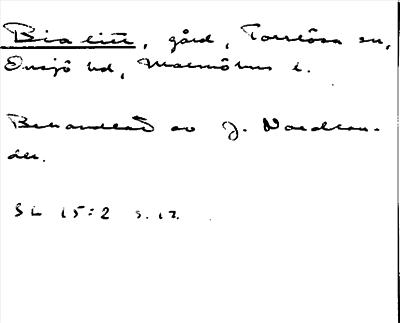 Bialitt, gård, Torrlösa sn,
Onsjö hd, Malmöhus l.
Behandlad av J. Nordlan-
der.
SL 15:2 s. 12.